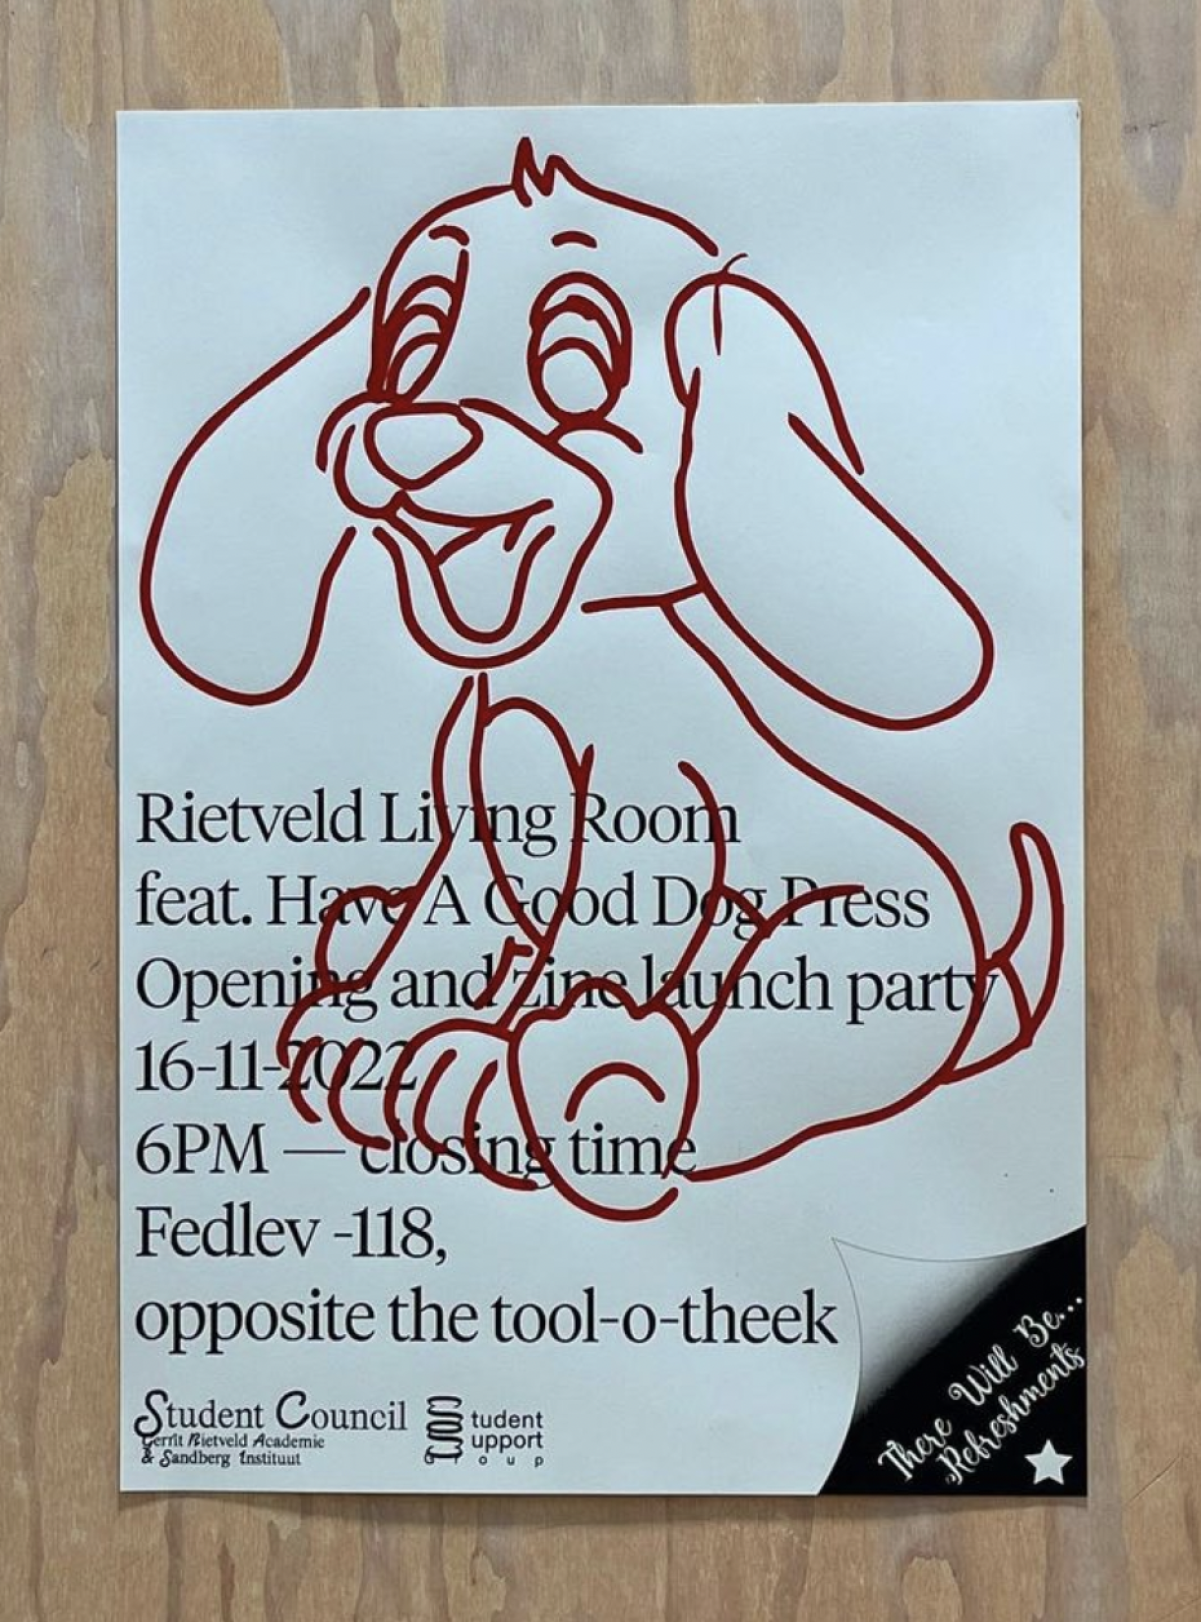 Rietveld Living Room
feat. Have A Good Dog Press
Opening and zine launch party
16-11-2022
6PM — closing time
Fedlev -118,
opposite the tool-o-theek
Student Council
Gerrit Rietveld Academie
& Sandberg Instituut
Student
Support
Group
There Will Be...
Refreshments